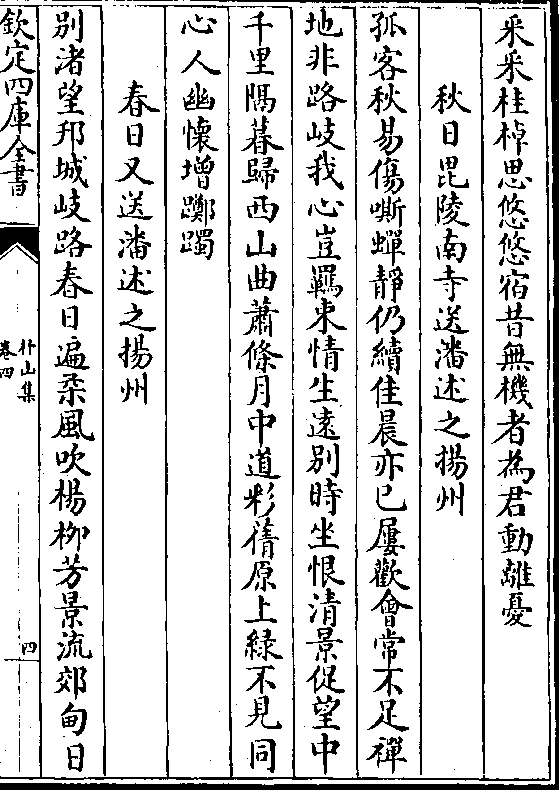 釆釆桂棹思悠悠宿昔無機者為君動離憂
秋日毘陵南寺送潘述之揚州
孤客秋易傷嘶蟬靜仍續佳晨亦已屢歡會常不足禪
地非路岐我心豈羈束情生遠别時坐恨清景促望中
千里隔暮歸西山曲蕭條月中道彩蒨原上緑不見同
心人幽懷增躑躅
春日又送潘述之揚州
别渚望邗城岐路春日遍柔風吹楊柳芳景流郊甸日
欽定四庫全書
杼山集
卷四
四